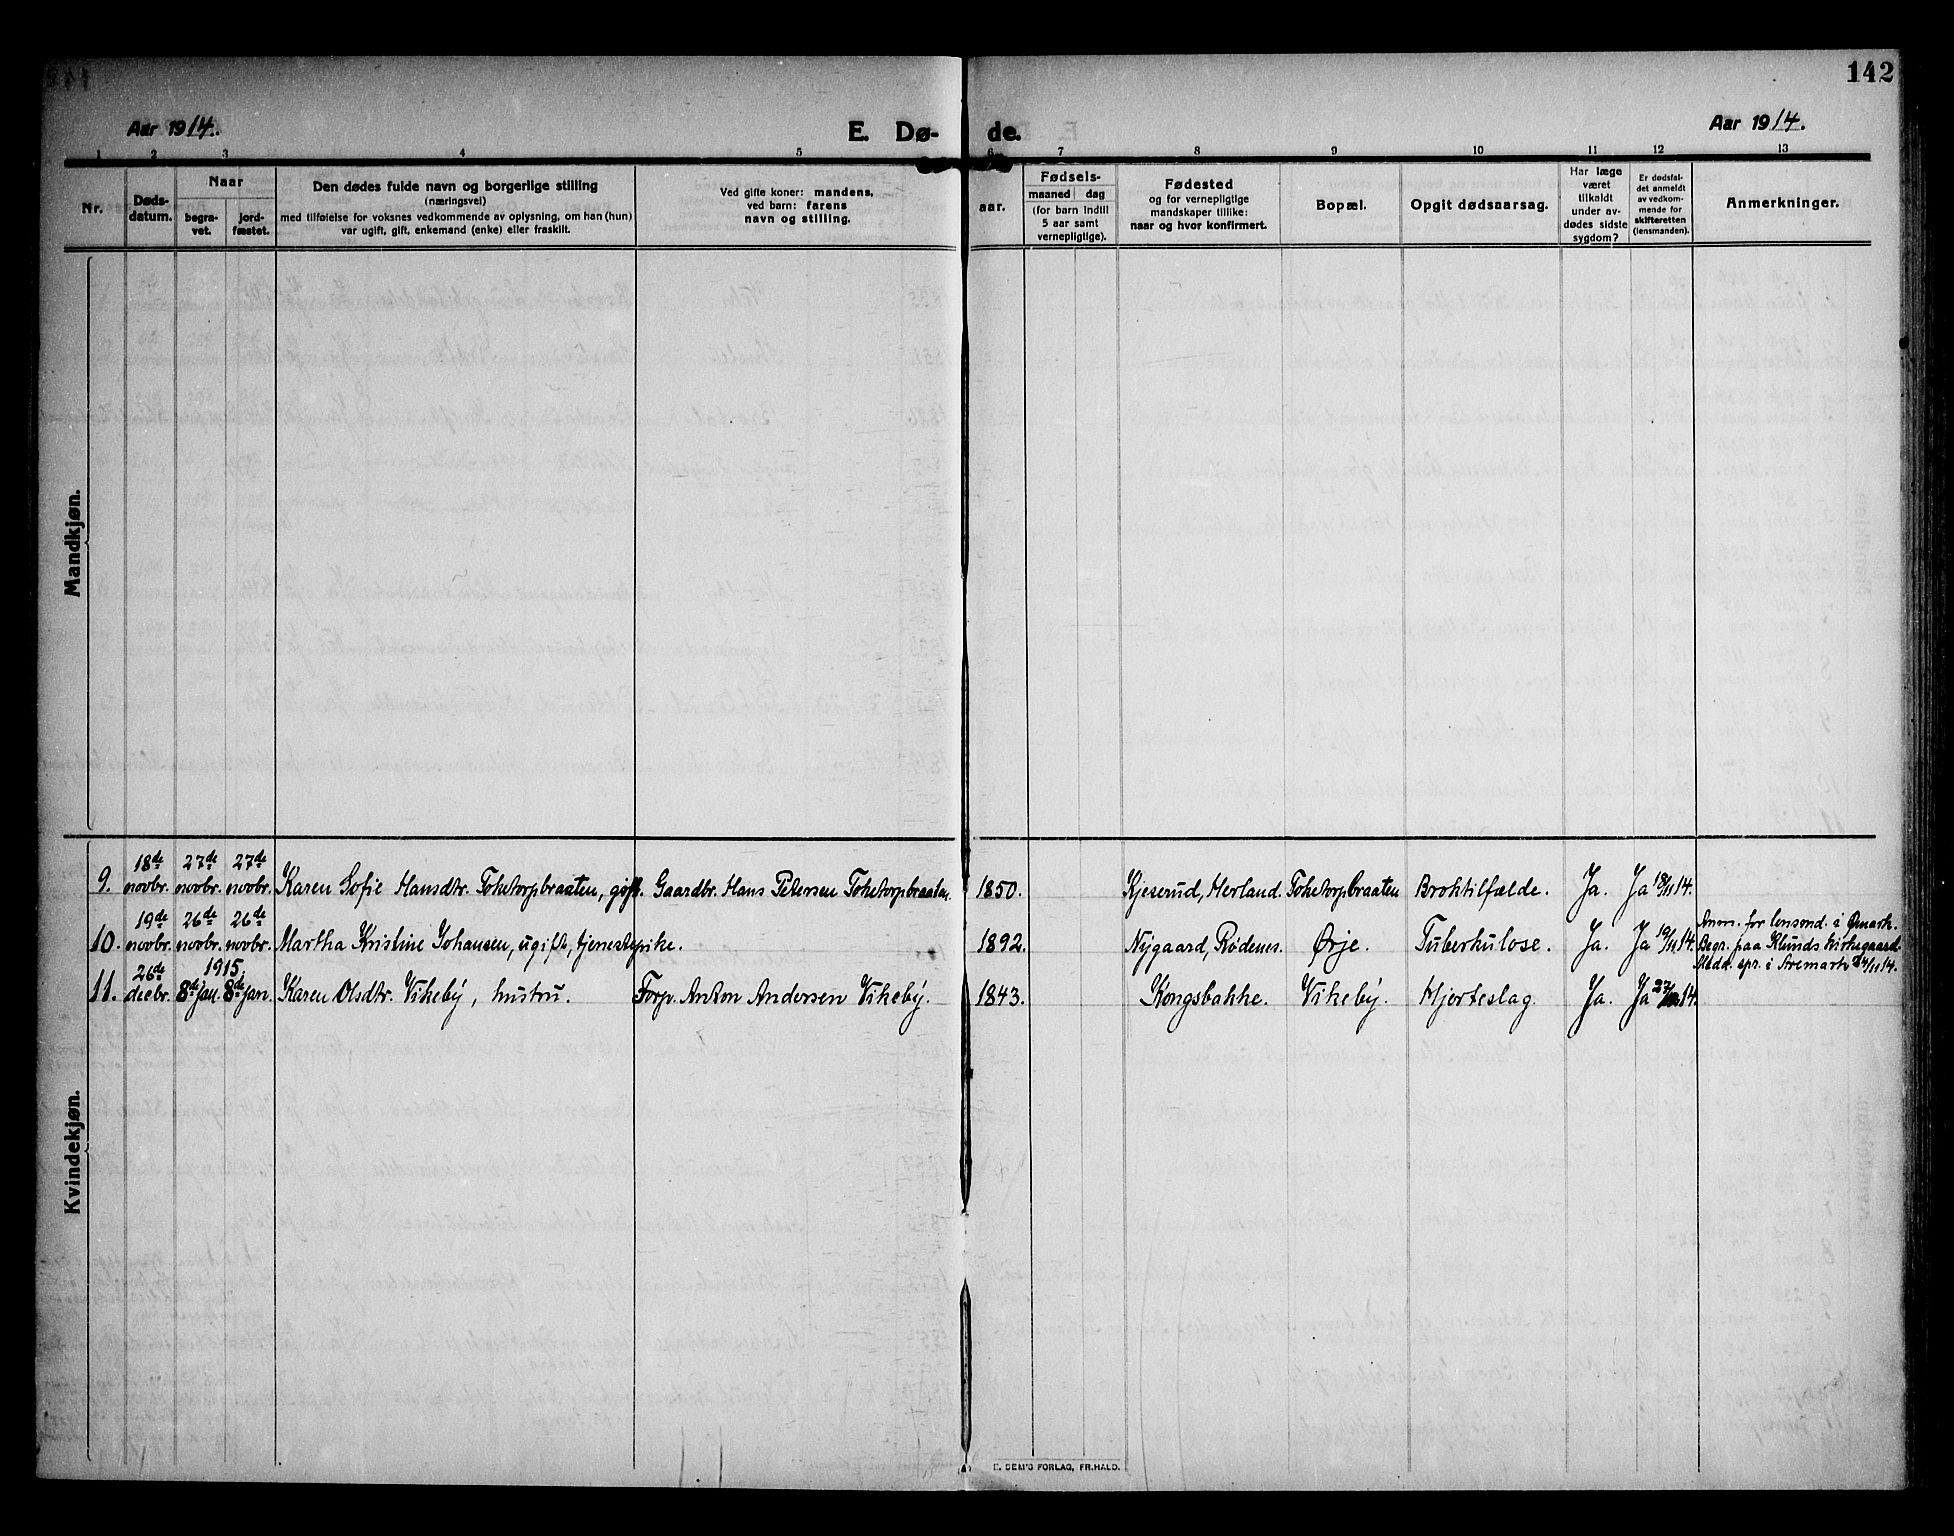 142
Aar 1914.
E. Dø- de.
Aar 1914.
1 2 3 4 5 6 7 8 9 10 11 12 13
Nr.
Døds-
datum.
Naar
begra-
vet.
jord-
fæstet.
Den dødes fulde navn og borgerlige stilling
(næringsvei)
med tilføielse for voksnes vedkommende av oplysning, om han (hun)
var ugift, gift, enkemand (enke) eller fraskilt.
Ved gifte koner: mandens,
ved barn: farens
navn og stilling.
aar.
Fødsels-
maaned dag
(for barn indtil
5 aar samt
vernepligtige).
Fødested
og for vernepligtige
mandskaper tillike:
naar og hvor konfirmert.
Bopæl.
Opgit dødsaarsag.
Har læge
været
tilkaldt
under av-
dødes sidste
sygdom?
Er dødsfal-
det anmeldt
av vedkom-
mende for
skifteretten
(lensmanden).
Anmerkninger.
Mandkjøn.
Kvindekjøn.
9. 18de novbr. 27de novbr. 27de novbr. Karen Sofie Hansdtr. Toketorpbraaten, gift. Gaardbr. Hans Petersen Toketorpbraaten. 1850. Kjeserud, Herland. Toketorpbraaten Broktilfælde. Ja. Ja 18/11 14.
10. 19de novbr. 26de novbr. 26de novbr. Martha Kristine Johansen, ugift, tjenestepike. 1892. Nygaard, Rødenes. Ørje. Tuberkulose. Ja. Ja 19/11 14. Anm. for lensmd. i Ømark.
Begr. paa Klunds kirkegaard.
Medd. spr. i Aremark 24/11 14.
11. 26de decbr. 1915. 8de jan. 8de jan. Karen Olsdtr. Vikeby, hustru. Forp. Anton Andersen Vikeby. 1843. Kongsbakke. Vikeby. Hjerteslag. Ja. Ja 27/12 14.
E. SEM'S FORLAG, FR.HALD.